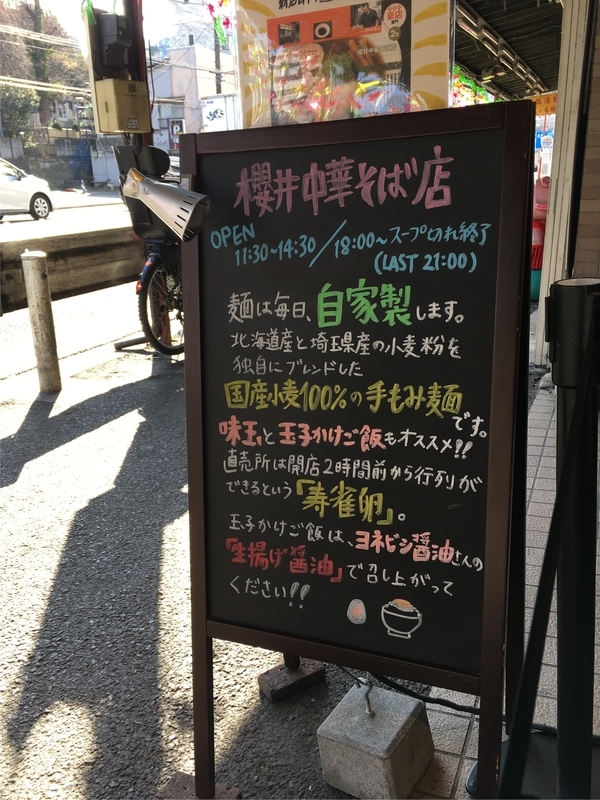 櫻井中華そば店
OPEN
11:30~14:30/18:00~スープ切れ終了
(LAST 21:00)
麺は毎日、自家製します。
北海道産と埼玉県産の小麦粉を
独自にブレンドした
国産小麦100%の手もみ麺
です。
味玉と玉子かけご飯もオススメ!!
直売所は開店2時間前から行列が
できるという「寿雀卵」。
玉子かけご飯は、ヨネビシ醤油さんの
「生揚げ醤油」で召し上がって
ください!!
P